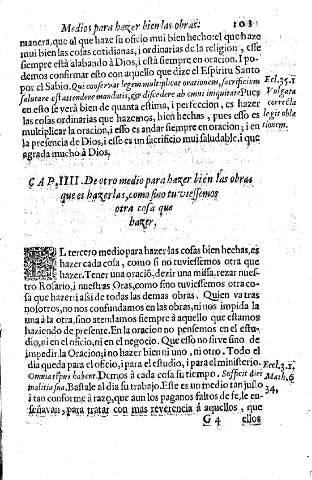 Medios para hazer bien las obras. 103
manera, que al que haze su oficio mui bien hecho: el que haze
mui bien las cosas cotidianas, i ordinarias de la religion, esse
siempre està alabando à Dios, i està siempre en oracion. I po-
demos confirmar esto con aquello que dize el Espiritu Santo
por el Sabio. Qui conservat legem multiplicat orationem, sacrificium
salutare est attendere mandatis, & discedere ab omni iniquitate Pues
en esto se verà bien de quanta estima, i perfeccion, es hazer
las cosas ordinarias que hazemos, bien hechas, pues esso es
multiplicar la oracion, i esso es andar siempre en oracion; i en
la presencia de Dios, i esse es un sacrificio mui saludable, i que
agrada mucho à Dios.
Ecl. 35. 1
Vulgata
correcta
legit obla
tionem.
CAP. IIII. De otro medio para hazer bien las obras
que es hazerlas, como sino tuviessemos
otra cosa que
hazer.
EL tercero medio para hazer las cosas bien hechas, es
hazer cada cosa, como si no tuviessemos otra que
hazer. Tener una oraciõ, dezir una missa, rezar nues-
tro Rosario, i nuestras Oras, como sino tuviessemos otra co-
sa que hazer: i assi de todas las demas obras. Quien va tras
nosotros, no nos confundamos en las obras, ni nos impida la
una à la otra, sino atendamos siempre à aquello que estamos
haziendo de presente. En la oracion no pensemos en el estu-
dio, ni en el oficio, ni en el negocio. Que esso no sirve sino de
impedir la Oracion; i no hazer bien ni uno, ni otro. Todo el
dia queda para el oficio, i para el estudio, i para el ministerio.
Omnia têpus habent. Demos à cada cosa su tiempo. Sufficit diei
malitia sua. Bastale al dia su trabajo. Este es un medio tan justo
i tan conforme à razõ, que aun los paganos faltos de fe, le en-
señavan, para tratar con mas reverencia à aquellos, que
Ecl. 3. 1.
Math. 6
34.
G 4 ellos